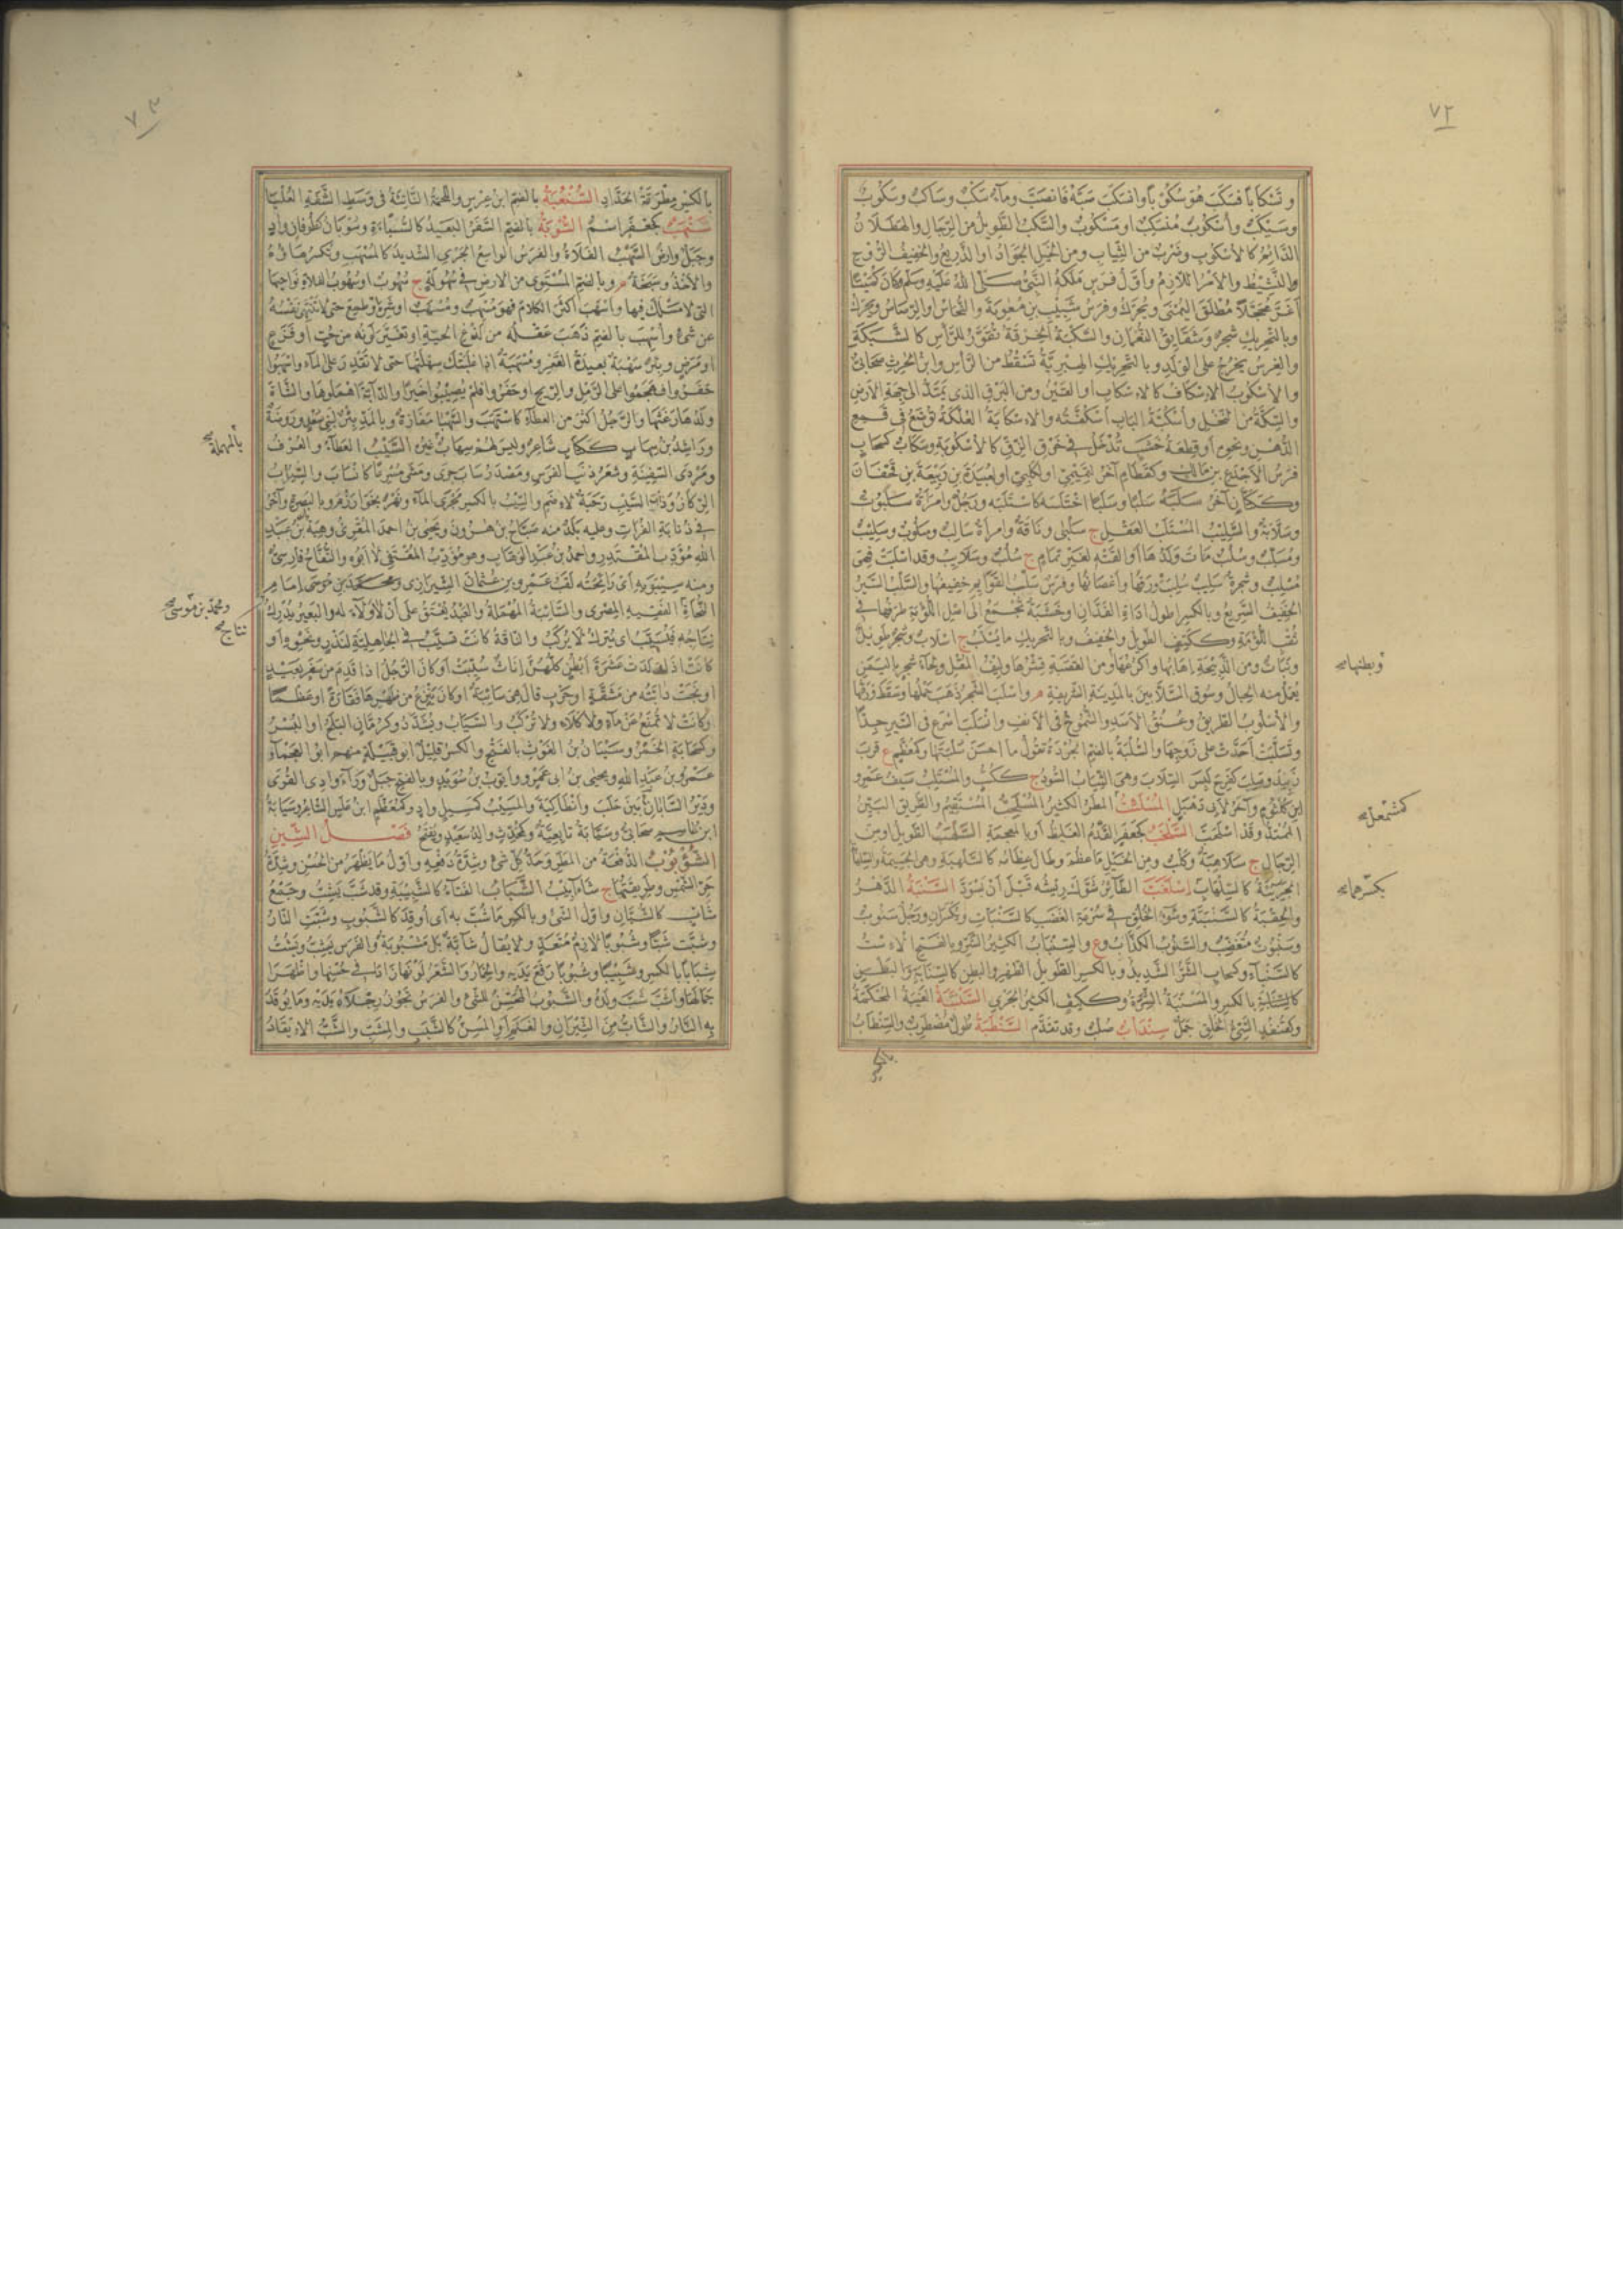 ٧٢
وتسكابا فسكب هو سكوبا وانسكب صبه فانصب وماء سكب وساكب وسكوب
وسيكب وأسكوب منسكب او مسكوب والسكب الطويل من الرجال والهطلان
الدائم كالأسكوب وضرب من الثياب ومن الخيل الجواد او الذريع والخفيف الروح
والنشيط والأمر اللازم وأول فرس ملكه النبي صلى الله عليه وسلم وكان كميتا
أغر محجلا مطلق اليمنى ويحرك وفرس شبيب بن معوية والنحاس والرصاص ويحرك
وبالتحريك شجر وشقايق النعمان والسكبة الخرقة تقور للرأس كالشبكة
والغرس يخرج على الولد وبالتحريك الهبرية تسقط من الرأس وابن الحرث صحابي
والاسكوب الاسكاف كالاسكاب او القين ومن البرق الذى يمتد الى جهة الارض
والسكة من النخل وأسكبة الباب أسكفته والاسكابة الفلكة توضع فى قمع
الدهن ونحوه او قطعة خشب تدخل فى خرق الزق كالأسكوبة وسكاب كسحاب
فرس الأجدع بن مالك وكقطام آخر لتميمي او لكلبي او لعبيدة بن ربيعة بن قحفان
وككتان آخر سلبه سلبا وسلبا اختلسه كاستلبه ورجل وامرأة سلبوت
وسلابة والسليب المستلب العقل ج سلبى وناقة وامرأة سالب وسلوب وسليب
ومسلب وسلب مات ولدها او القته لغير تمام ج سلب وسلايب وقد اسلبت فهى
مسلب وشجرة سليب سلبت ورقها وأغصانها وفرس سلب القوايم خفيفها والسلب السير
الخفيف السريع وبالكسر اطول اداة الفدان او خشبة تجمع الى اصل اللؤمة طرفها فى
ثقب اللؤمة وككتف الطويل والخفيف وبالتحريك ما يسلب ج اسلاب وشجر طويل
ونبات ومن الذبيحة اهابها واكرعها ومن القصبة قشرها وليف المقل ولحاء شجر باليمن
وبطنها صح
يعمل منه الحبال وسوق السلابين بالمدينة الشريفة م واسلب الشجر ذهب حملها وسقط ورقها
والأسلوب الطريق وعنق الاسد والشموخ فى الانف وانسلب اسرع فى السير جدا
وتسلبت أحدت على زوجها والسلبة بالضم الجردة تقول ما احسن سلبتها وكمعظم ع قرب
زبيد وسلب كفرح لبس السلاب وهى الثياب السود ج ككتب والمستلب سيف عمرو
ابن كلثوم وآخر لأبي دهبل المسلئب المطر الكثير المسلحب المستقيم والطريق البين
كمشمعل صح
الممتد وقد اسلحب السلخب كجعفر الفدم الغليظ او بالمعجمة السلهب الطويل او من
الرجال ج سلاهبة وكلب ومن الخيل ما عظم وطال عظامه كالسلهبة وهى الجسيمة والسلهابة
الجريئة كالسلهاب اسلغب الطائر شوك ريشه قبل أن يسود السنبة الدهر
بكسرهما صح
والحقبة كالسنبتة وسوء الخلق فى سرعة الغضب كالسنبات ويكسران ورجل سنوب
وسنبوت متغضب والسنوب الكذاب وع والسنباب الكثير الشر وبالفتح الاست
كالسنباء وكسحاب الشر الشديد وبالكسر الطويل الظهر والبطن كالسنابة والبطين
كالسنابة بالكسر والمسنبة الشرة وككتف الكثير الجري السنتبة الغيبة المحكمة
وكقنفذ السيئ الخلق جمل سنداب صلب وقد تقدم السنطبة طول مضطرب والسنطاب
بالكسر
٧٣
بالكسر مطرقة الحداد السنعبة بالضم ابن عرس واللحمة الناتئة فى وسط الشفة العليا
سنهب كجعفر اسم السوبة بالضم السفر البعيد كالسبأة وسوبان كطوفان واد
وجبل وارض السهب الفلاة والفرس الواسع الجري الشديد كالمسهب وتكسر هاؤه
والاخذ وسبخة م وبالضم المستوى من الارض فى سهولة ج سهوب او سهوب الفلاة نواحيها
التى لا مسلك فيها واسهب اكثر الكلام فهو مسهب ومسهب او شره وطمع حتى لا تنتهى نفسه
عن شئ وأسهب بالضم ذهب عقله من لدغ الحية او تغير لونه من حب او فزع
او مرض وبئر سهبة بعيدة القعر ومسهبة اذا غلبتك سهلتها حتى لا تقدر على الماء واسهبوا
حفروا فهجموا على الرمل والريح او حفروا فلم يصيبوا خيرا والدابة اهملوها والشاة
ولدها رغثها والرجل اكثر من العطاء كاستهب والسهبا مفازة وبالمد بئر لبنى سعد وروضة
بالمهملة صح
وراشد بن سهاب ككتاب شاعر وليس لهم سهاب غيره السيب العطاء والعرف
ومردى السفينة وشعر ذنب الفرس ومصدر ساب جرى ومشى مسرعا كانساب والسياب
الركاز وذات السيب رحبة لاضم والسيب بالكسر مجرى الماء ونهر بخوارزم وبالبصرة وآخر
فى ذنابة الفرات وعليه بلد منه صباح بن هرون ويحيى بن احمد المقرئ وهبة بن عبد
الله مؤدب المقتدر واحمد بن عبد الوهاب وهو مؤدب المقتفى لا ابوه والتفاح فارسى
ومنه سيبويه أى رائحته لقب عمرو بن عثمان الشيرازى ومحمد بن موسى امام
ومحمد بن موسى صح
النحاة الفقيه المصرى والسائبة المهملة والعبد يعتق على أن لا ولاء له والبعير يدرك
نتاج صح
نتاجه فيسيب اى يترك لا يركب والناقة كانت تسيب فى الجاهلية لنذر ونحوه او
كانت اذا ولدت عشرة أبطن كلهن اناث سيبت او كان الرجل اذا قدم من سفر بعيد
او نجت دابته من مشقة او حرب قال هى سائبة او كان ينزع من ظهرها فقارة او عظما
وكانت لا تمنع عن ماء ولا كلاء ولا تركب والسياب ويشدد وكرمان البلح او البسر
وكسحابة الخمر وسيبان بن الغوث بالفتح والكسر قليل ابو قبيلة منهم ابو العجماء
عمرو بن عبد الله ويحيى بن ابى عمرو وايوب بن سويد وبالفتح جبل وراء وادى القرى
ودير السابان بين حلب وانطاكية والمسيب كسيل واد وكمعظم ابن علس الشاعر وسيابة
ابن عاصم صحابى وسيابة تابعية وكمحدث والد سعيد ويفتح فصل الشين
الشؤبوب الدفعة من المطر وحد كل شئ وشدة دفعه واول ما يظهر من الحسن وشدة
حر الشمس وطريقتها ج شآبيب الشباب الفتاء كالشبيبة وقد شب يشب وجمع
شاب كالشبان واول الشئ وبالكسر ما شب به أى أوقد كالشبوب وشبت النار
وشبت شبا وشبوبا لازم متعد ولا يقال شابة بل مشبوبة والفرس يشب ويشب
شبابا بالكسر وشبيبا وشبوبا رفع يديه والخمار والشعر لونها زادا فى حسنها واظهرا
جمالها واشب شب ولده والشبوب المحسن للشئ والفرس تجوز رجلاه يديه وما يوقد
به النار والشاب من الثيران والغنم او المسن كالشبب والمشب والشب الايقاد